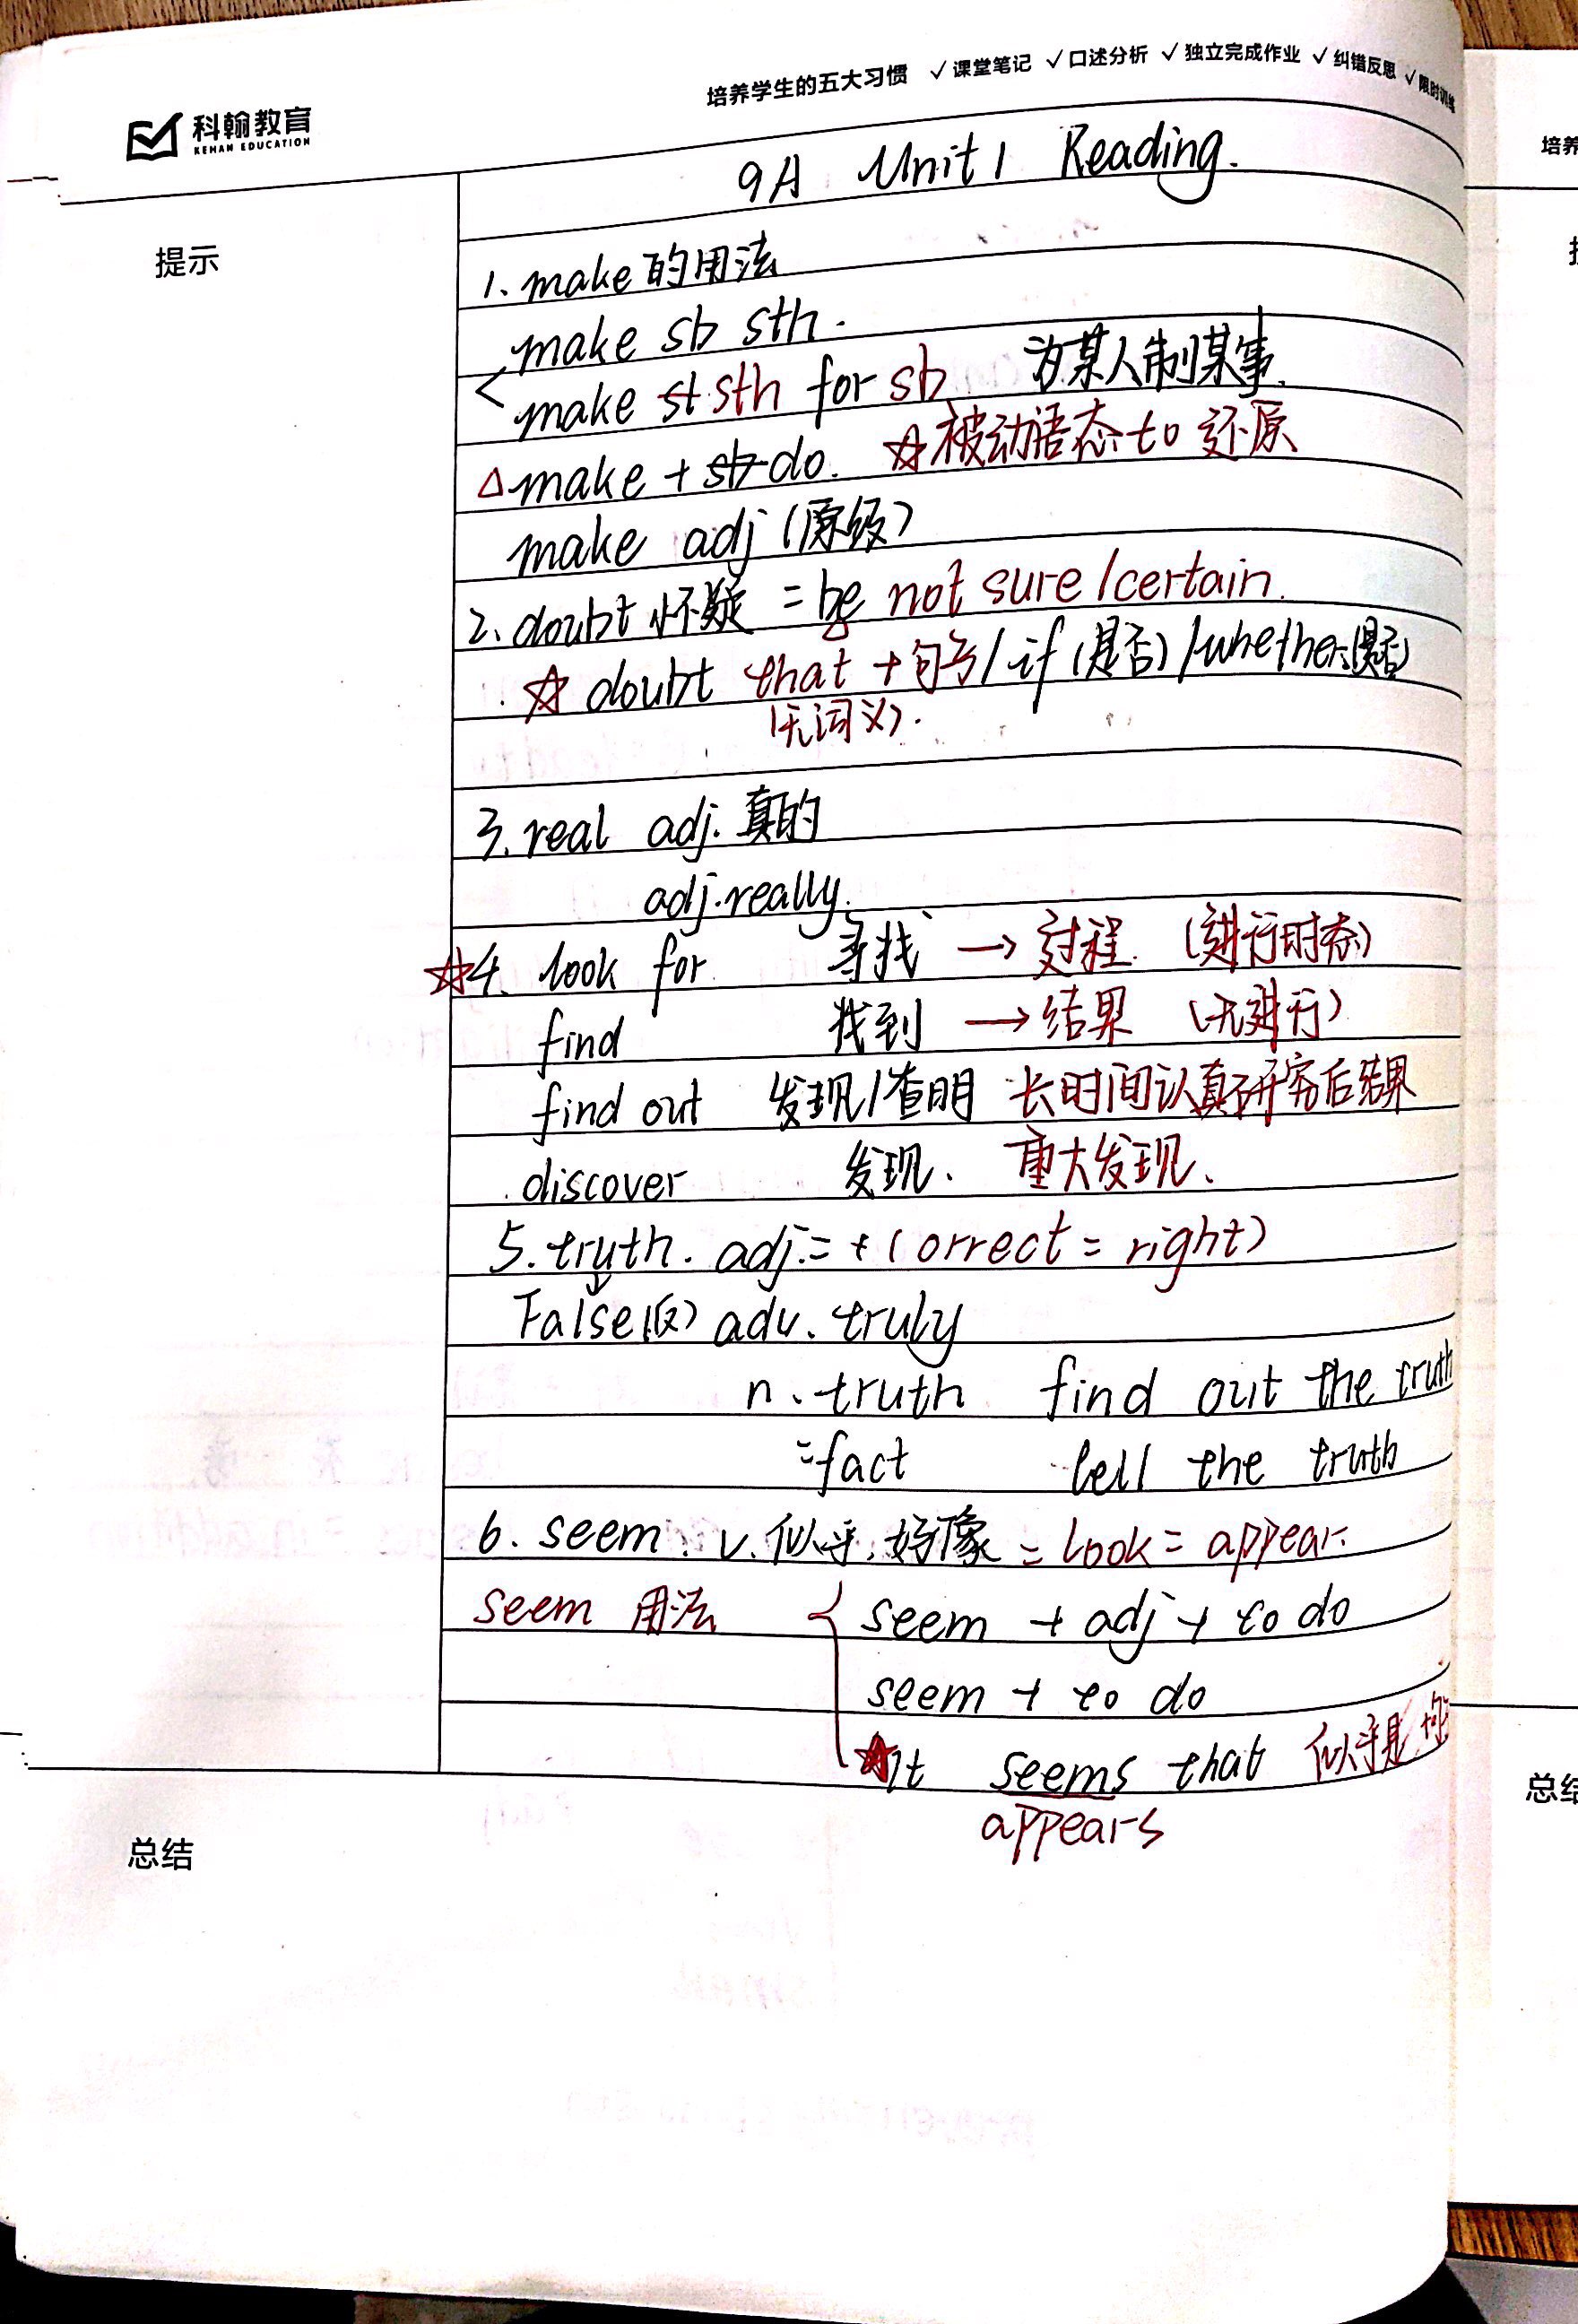 培养学生的五大习惯 ✓课堂笔记 ✓口述分析 ✓独立完成作业 ✓纠错反思 ✓限时训练
科翰教育
KEHAN EDUCATION
培养
9A Unit 1 Reading.
提示
1. make的用法
make sb sth.
< make st sth for sb 为某人制某事.
△make + sb do. ☆被动语态to 还原
make adj (原级)
2. doubt 怀疑 = be not sure/certain.
☆ doubt that + 句子/ if (是否) /whether(是否)
(无词义).
3. real adj. 真的
adj. really.
☆4. look for 寻找 → 过程. (进行时态)
find 找到 → 结果 (无进行)
find out 发现/查明 长时间认真研究后结果
discover 发现. 重大发现.
5. truth. adj. = t (orrect = right)
False(反) adv. truly
n. truth find out the truth
=fact tell the truth
6. seem. v. 似乎, 好像 = look = appear.
seem 用法 { seem + adj + to do
seem + to do
★It seems that 似乎是
appears
总结
总结